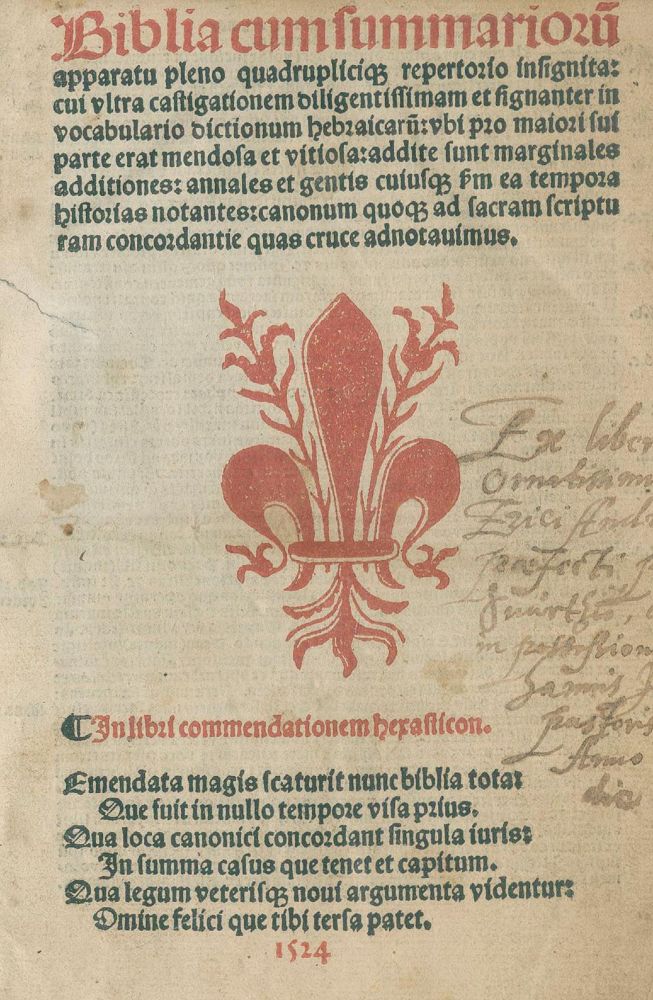 Biblia cum summariorū
apparatu pleno quadrupliciqꝫ repertorio insignita:
cui vltra castigationem diligentissimam et signanter in
vocabulario dictionum hebraicarū: vbi pro maiori sui
parte erat mendosa et vitiosa: addite sunt marginales
additiones: annales et gentis cuiusqꝫ ẜm ea tempora
historias notantes: canonum quoqꝫ ad sacram scriptu
ram concordantie quas cruce adnotauimus.
Ex liber
Erici
præfecti
in possession
pastoris
Anno
die
¶ In libri commendationem hexasticon.
Emendata magis scaturit nunc biblia tota:
Que fuit in nullo tempore visa prius.
Qua loca canonici concordant singula iuris:
In summa casus que tenet et capitum.
Qua legum veterisqꝫ noui argumenta videntur:
Omine felici que tibi tersa patet.
1524